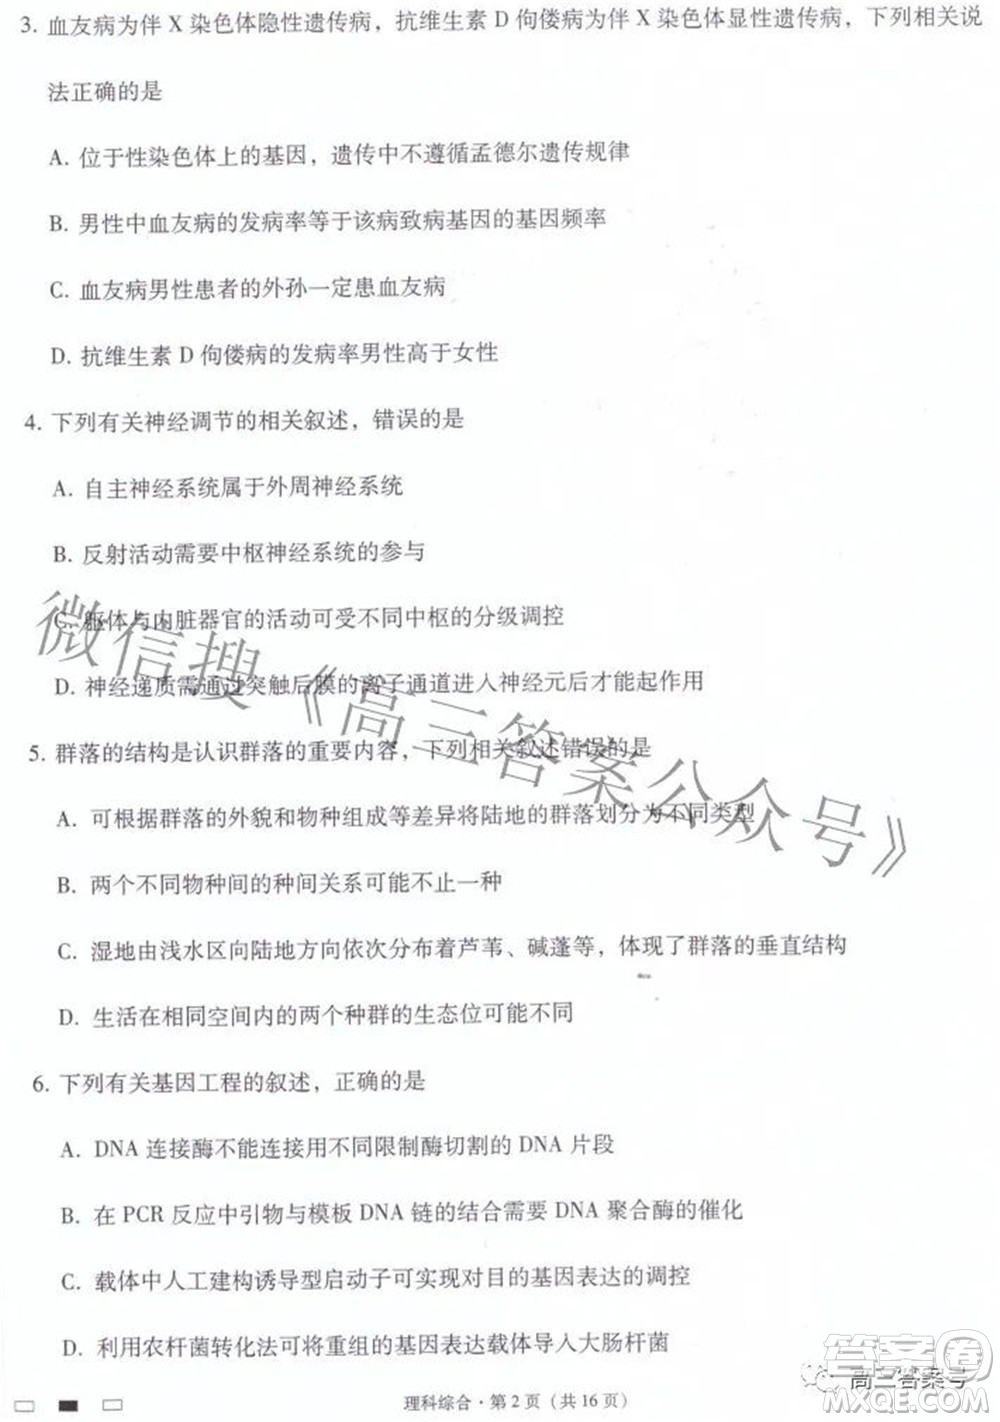 3. 血友病为伴 X 染色体隐性遗传病，抗维生素 D 佝偻病为伴 X 染色体显性遗传病，下列相关说
法正确的是
A. 位于性染色体上的基因，遗传中不遵循孟德尔遗传规律
B. 男性中血友病的发病率等于该病致病基因的基因频率
C. 血友病男性患者的外孙一定患血友病
D. 抗维生素 D 佝偻病的发病率男性高于女性
4. 下列有关神经调节的相关叙述，错误的是
A. 自主神经系统属于外周神经系统
B. 反射活动需要中枢神经系统的参与
C. 躯体与内脏器官的活动可受不同中枢的分级调控
D. 神经递质需通过突触后膜的离子通道进入神经元后才能起作用
微信搜《高三答案公众号》
5. 群落的结构是认识群落的重要内容，下列相关叙述错误的是
A. 可根据群落的外貌和物种组成等差异将陆地的群落划分为不同类型
B. 两个不同物种间的种间关系可能不止一种
C. 湿地由浅水区向陆地方向依次分布着芦苇、碱蓬等，体现了群落的垂直结构
D. 生活在相同空间内的两个种群的生态位可能不同
6. 下列有关基因工程的叙述，正确的是
A. DNA 连接酶不能连接用不同限制酶切割的 DNA 片段
B. 在 PCR 反应中引物与模板 DNA 链的结合需要 DNA 聚合酶的催化
C. 载体中人工建构诱导型启动子可实现对目的基因表达的调控
D. 利用农杆菌转化法可将重组的基因表达载体导入大肠杆菌
答案圈
高三答案号
MXQE.COM
理科综合·第 2 页（共 16 页）